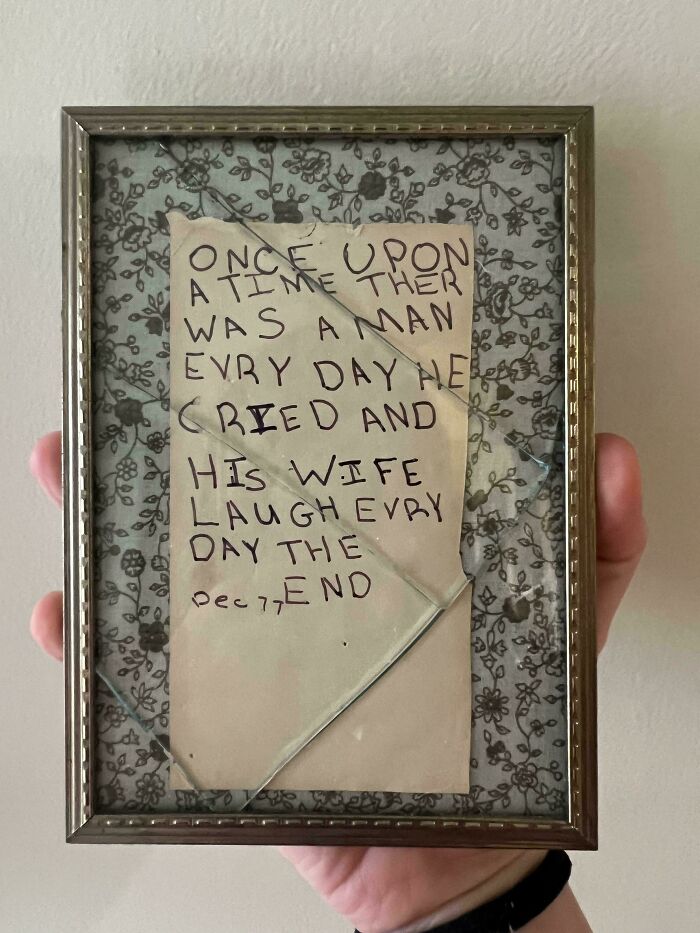 ONCE UPON
A TIME THER
WAS A MAN
EVRY DAY HE
CRIED AND
HIS WIFE
LAUGH EVRY
DAY THE
Dec 77 END